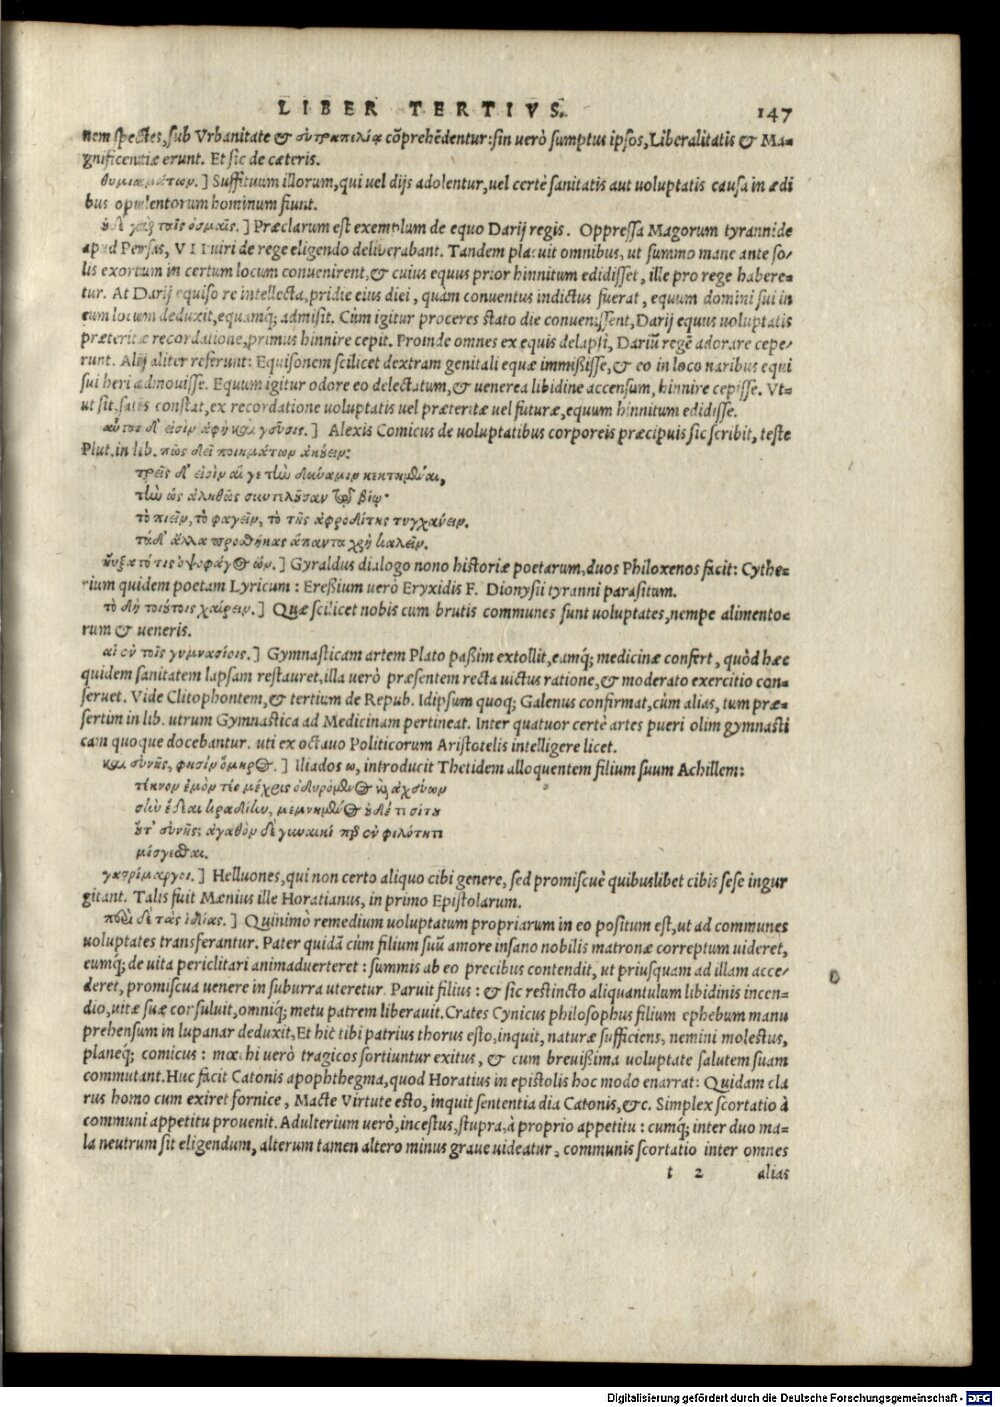 LIBER TERTIVS. 147
nem spectes, sub Vrbanitate & εὐτραπελίᾳ cõprehẽdentur: sin uerò sumptus ipsos, Liberalitatis & Ma-
gnificentiæ erunt. Et sic de cæteris.
θυμιαμάτων.] Suffituum illorum, qui uel dijs adolentur, uel certè sanitatis aut uoluptatis causa in ædi
bus opulentorum hominum fiunt.
ὐδὲ γὰρ ταῖς ὀσμαῖς.] Præclarum est exemplum de equo Darij regis. Oppressa Magorum tyrannide
apud Persas, VII uiri de rege eligendo deliberabant. Tandem placuit omnibus, ut summo mane ante so/
lis exortum in certum locum conuenirent, & cuius equus prior hinnitum edidisset, ille pro rege habere-
tur. At Darij equiso re intellecta, pridie eius diei, quàm conuentus indictus fuerat, equum domini sui in
eum locum deduxit, equamq; admisit. Cùm igitur proceres stato die conuenissent, Darij equus uoluptatis
præteritæ recordatione, primus hinnire cepit. Proinde omnes ex equis delapsi, Dariũ regẽ adorare cepe/
runt. Alij aliter referunt: Equisonem scilicet dextram genitali equæ immisisse, & eo in loco naribus equi
sui heri admouisse. Equum igitur odore eo delectatum, & uenerea libidine accensum, hinnire cepisse. Vt-
ut sit, satis constat, ex recordatione uoluptatis uel præteritæ uel futuræ, equum hinnitum edidisse.
αὗται δ' εἰσὶν ἁφὴ καὶ γεῦσις.] Alexis Comicus de uoluptatibus corporeis præcipuis sic scribit, teste
Plut. in lib. πῶς δεῖ ποιημάτων ἀκούειν:
τρεῖς δ' εἰσὶν αἵ γε τὴν δύναμιν κεκτημέναι,
τὴν ὡς ἀληθῶς συντελοῦσαν τῷ βίῳ·
τὸ πιεῖν, τὸ φαγεῖν, τὸ τῆς ἀφροδίτης τυγχάνειν.
τὰ δ' ἄλλα προσθήκας ἅπαντα χρὴ καλεῖν.
ηὔξατό τις ὀψοφάγος ὤν.] Gyraldus dialogo nono historiæ poetarum, duos Philoxenos facit: Cythe-
rium quidem poetam Lyricum: Eressium uerò Eryxidis F. Dionysii tyranni parasitum.
τὸ δὴ τοιούτοις χαίρειν.] Quæ scilicet nobis cum brutis communes sunt uoluptates, nempe alimento-
rum & ueneris.
αἱ ἐν τοῖς γυμνασίοις.] Gymnasticam artem Plato passim extollit, eamq; medicinæ confert, quòd hæc
quidem sanitatem lapsam restauret, illa uerò præsentem recta uictus ratione, & moderato exercitio con-
seruet. Vide Clitophontem, & tertium de Repub. Idipsum quoq; Galenus confirmat, cùm alias, tum præ-
sertim in lib. utrum Gymnastica ad Medicinam pertineat. Inter quatuor certè artes pueri olim gymnasti
cam quoque docebantur. uti ex octauo Politicorum Aristotelis intelligere licet.
καὶ εὐνῆς, φησὶν ὅμηρος.] Iliados ω, introducit Thetidem alloquentem filium suum Achillem:
τέκνον ἐμὸν τέο μέχρις ὀδυρόμενος καὶ ἀχεύων
σὴν ἔδεαι κραδίην, μεμνημένος ὐδέ τι σίτυ
ὔτ' εὐνῆς; ἀγαθὸν δὲ γυναικί περ ἐν φιλότητι
μίσγεσθαι.
γαστρίμαργοι.] Helluones, qui non certo aliquo cibi genere, sed promiscuè quibuslibet cibis sese ingur
gitant. Talis fuit Mænius ille Horatianus, in primo Epistolarum.
περὶ δὲ τὰς ἰδίας.] Quinimò remedium uoluptatum propriarum in eo positum est, ut ad communes
uoluptates transferantur. Pater quidã cùm filium suũ amore insano nobilis matronæ correptum uideret,
eumq; de uita periclitari animaduerteret: summis ab eo precibus contendit, ut priusquam ad illam acce/
deret, promiscua uenere in suburra uteretur. Paruit filius: & sic restincto aliquantulum libidinis incen-
dio, uitæ suæ consuluit, omniq; metu patrem liberauit. Crates Cynicus philosophus filium ephebum manu
prehensum in lupanar deduxit, Et hic tibi patrius thorus esto, inquit, naturæ sufficiens, nemini molestus,
planeq; comicus: mœchi uerò tragicos sortiuntur exitus, & cum breuissima uoluptate salutem suam
commutant. Huc facit Catonis apophthegma, quod Horatius in epistolis hoc modo enarrat: Quidam cla
rus homo cum exiret fornice, Macte Virtute esto, inquit sententia dia Catonis, &c. Simplex scortatio à
communi appetitu prouenit. Adulterium uerò, incestus, stupra, à proprio appetitu: cumq; inter duo ma-
la neutrum sit eligendum, alterum tamen altero minus graue uideatur, communis scortatio inter omnes
t 2 alias
Digitalisierung gefördert durch die Deutsche Forschungsgemeinschaft - DFG